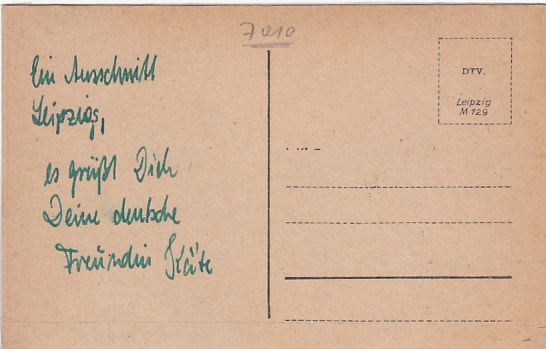 7010
Ein Ausschnitt
Leipzigs,
es grüßt Dich
Deine deutsche
Freundin Käte
DTV.
Leipzig
M 129